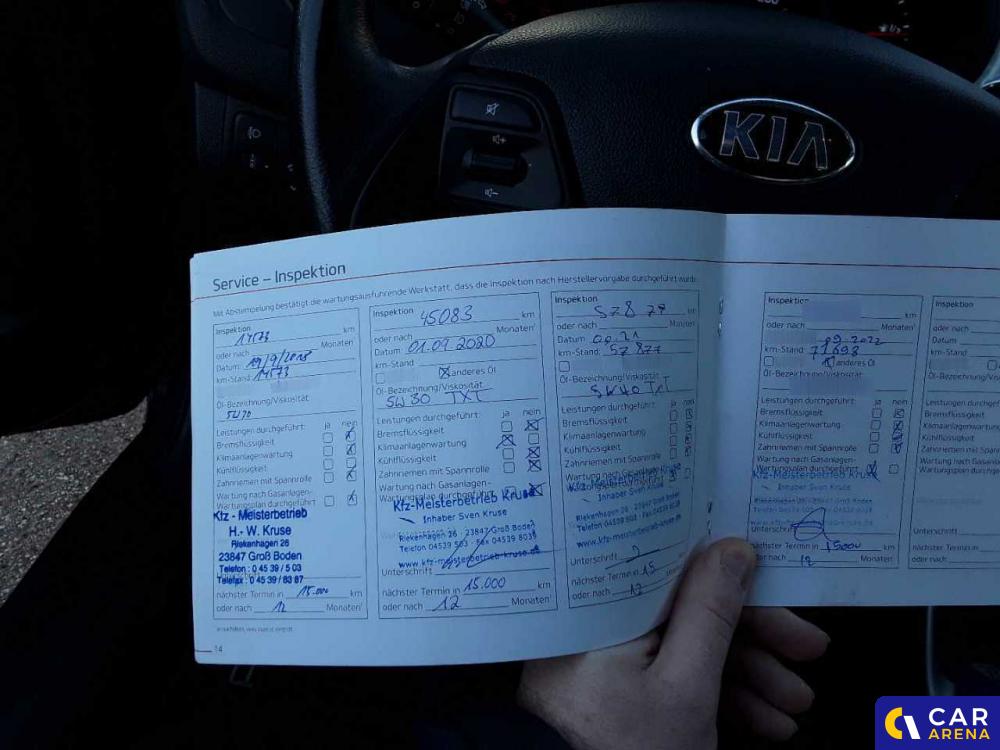 KIA
Service – Inspektion
Mit Abstempelung bestätigt die wartungsausführende Werkstatt, dass die Inspektion nach Herstellervorgabe durchgeführt wurde.
Inspektion
km
oder nach Monaten¹
Datum:
km-Stand:
Öl-Bezeichnung/Viskosität
Leistungen durchgeführt: ja nein
Bremsflüssigkeit
Klimaanlagenwartung
Kühlflüssigkeit
Zahnriemen mit Spannrolle
Wartung nach Gasanlagen-
Wartungsplan durchgeführt
Kfz - Meisterbetrieb
H.- W. Kruse
Riekenhagen 26
23847 Groß Boden
Telefon : 0 45 39 / 5 03
nächster Termin in 15.000 km
oder nach 12 Monaten¹
14
Inspektion 45083 km
oder nach Monaten¹
Datum 01.09.2020
km-Stand
anderes Öl
Öl-Bezeichnung/Viskosität
5W30 TXT
Leistungen durchgeführt: ja nein
Bremsflüssigkeit
Klimaanlagenwartung
Kühlflüssigkeit
Zahnriemen mit Spannrolle
Wartung nach Gasanlagen-
Wartungsplan durchgeführt
Kfz-Meisterbetrieb Kruse
Inhaber Sven Kruse
Riekenhagen 26 · 23847 Groß Boden
Telefon 04539 503 · Fax 04539 8038
www.kfz-meisterbetrieb-kruse.de
Unterschrift
nächster Termin in 15.000 km
oder nach 12 Monaten¹
Inspektion
km
oder nach Monaten¹
Datum:
km-Stand: 57877
Öl-Bezeichnung/Viskosität
5W40 TXT
Leistungen durchgeführt: ja nein
Bremsflüssigkeit
Klimaanlagenwartung
Kühlflüssigkeit
Zahnriemen mit Spannrolle
Wartung nach Gasanlagen-
Kfz-Meisterbetrieb Kruse
Inhaber Sven Kruse
Riekenhagen 26 · 23847 Groß Boden
Telefon 04539 503
www.kfz-meisterbetrieb-kruse.de
Unterschrift
nächster Termin in 15
oder nach 12
Inspektion
km
oder nach Monaten¹
Datum 09.2022
km-Stand: 71693
anderes Öl
Öl-Bezeichnung/Viskosität
Leistungen durchgeführt: ja nein
Bremsflüssigkeit
Klimaanlagenwartung
Kühlflüssigkeit
Zahnriemen mit Spannrolle
Wartung nach Gasanlagen-
Wartungsplan durchgeführt
Kfz-Meisterbetrieb Kruse
Inhaber Sven Kruse
Unterschrift
nächster Termin in 15000 km
oder nach 12 Monaten¹
Inspektion
oder nach
Datum
km-Stand
Öl-Bezeichnung
Leistungen durchgef
Bremsflüssigkeit
Klimaanlagenwartung
Kühlflüssigkeit
Zahnriemen mit Spann
Wartung nach Gasanlagen
Wartungsplan durch
Unterschrift
nächster Termin in
oder nach
CAR
ARENA